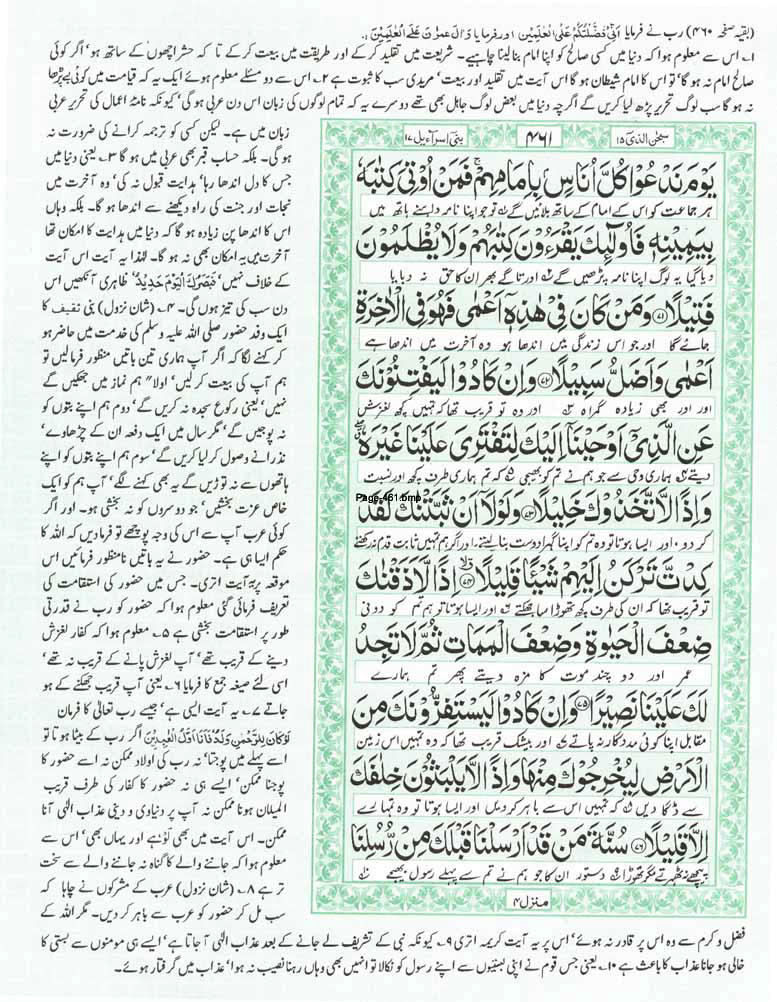 (بقیہ صفحہ ۴۶۰) رب نے فرمایا اَنِّیْ فَضَّلْتُکُمْ عَلَی الْعٰلَمِیْنَ اور فرمایا وَاٰلَ عِمْرٰنَ عَلَی الْعٰلَمِیْنَ
۱۔ اس سے معلوم ہوا کہ دنیا میں کسی صالح کو اپنا امام بنالینا چاہیے۔ شریعت میں تقلید کرکے اور طریقت میں بیعت کرکے تا کہ حشر اچھوں کے ساتھ ہو' اگر کوئی
صالح امام نہ ہو گا' تو اس کا امام شیطان ہو گا اس آیت میں تقلید اور بیعت' مریدی سب کا ثبوت ہے ۲۔ اس سے دو مسئلے معلوم ہوئے ایک یہ کہ قیامت میں کوئی بے پڑھا
نہ ہو گا سب لوگ تحریر پڑھ لیا کریں گے اگرچہ دنیا میں بعض لوگ جاہل بھی تھے دوسرے یہ کہ تمام لوگوں کی زبان اس دن عربی ہو گی' کیونکہ نامۂ اعمال کی تحریر عربی
سبحٰن الذی ۱۵
۴۶۱
بنی اسرآءیل ۱۷
یَوْمَ نَدْعُوْا کُلَّ اُنَاسٍۭ بِاِمَامِهِمْ ۚ فَمَنْ اُوْتِیَ کِتٰبَهٗ
ہر جماعت کو اس کے امام کے ساتھ بلائیں گے تو جو اپنا نامہ داہنے ہاتھ میں
بِیَمِیْنِهٖ فَاُولٰٓئِکَ یَقْرَءُوْنَ کِتٰبَهُمْ وَلَا یُظْلَمُوْنَ
دیا گیا یہ لوگ اپنا نامہ پڑھیں گے اور تاگے بھر ان کا حق نہ دبایا
فَتِیْلًا ﴿۷۱﴾ وَمَنْ کَانَ فِیْ هٰذِهٖۤ اَعْمٰی فَهُوَ فِی الْاٰخِرَةِ
جائے گا اور جو اس زندگی میں اندھا ہو وہ آخرت میں اندھا ہے
اَعْمٰی وَاَضَلُّ سَبِیْلًا ﴿۷۲﴾ وَاِنْ کَادُوْا لَیَفْتِنُوْنَکَ
اور اور بھی زیادہ گمراہ اور وہ تو قریب تھا کہ تمہیں کچھ لغزش
عَنِ الَّذِیْۤ اَوْحَیْنَاۤ اِلَیْکَ لِتَفْتَرِیَ عَلَیْنَا غَیْرَهٗ
دیتے ہماری وحی سے جو ہم نے تم کو بھیجی کہ تم ہماری طرف کچھ اور نسبت
Page-461.bmp
وَاِذًا لَّاتَّخَذُوْکَ خَلِیْلًا ﴿۷۳﴾ وَلَوْلَاۤ اَنْ ثَبَّتْنٰکَ لَقَدْ
کر دو اور ایسا ہوتا تو وہ تم کو اپنا گہرا دوست بنا لیتے اور اگر ہم تمہیں ثابت قدم نہ رکھتے
کِدْتَّ تَرْکَنُ اِلَیْهِمْ شَیْئًا قَلِیْلًا ﴿۷۴﴾ اِذًا لَّاَذَقْنٰکَ
تو قریب تھا کہ ان کی طرف کچھ تھوڑا سا جھکتے اور ایسا ہوتا تو ہم تم کو دونی
ضِعْفَ الْحَیٰوةِ وَضِعْفَ الْمَمَاتِ ثُمَّ لَا تَجِدُ
عمر اور دو چند موت کا مزہ دیتے پھر تم ہمارے
لَکَ عَلَیْنَا نَصِیْرًا ﴿۷۵﴾ وَاِنْ کَادُوْا لَیَسْتَفِزُّوْنَکَ مِنَ
مقابل اپنا کوئی مددگار نہ پاتے اور بیشک قریب تھا کہ وہ تمہیں اس زمین
الْاَرْضِ لِیُخْرِجُوْکَ مِنْهَا وَاِذًا لَّا یَلْبَثُوْنَ خِلٰفَکَ
سے ڈگا دیں کہ تمہیں اس سے باہر کر دیں اور ایسا ہوتا تو وہ تمہارے
اِلَّا قَلِیْلًا ﴿۷۶﴾ سُنَّةَ مَنْ قَدْ اَرْسَلْنَا قَبْلَکَ مِنْ رُّسُلِنَا
پیچھے نہ ٹھہرتے مگر تھوڑا دستور ان کا جو ہم نے تم سے پہلے رسول بھیجے
منزل ۴
زبان میں ہے۔ لیکن کسی کو ترجمہ کرانے کی ضرورت نہ
ہوگی۔ بلکہ حساب قبر بھی عربی میں ہو گا ۳۔ یعنی دنیا میں
جس کا دل اندھا رہا' ہدایت قبول نہ کی' وہ آخرت میں
نجات اور جنت کی راہ دیکھنے سے اندھا ہو گا۔ بلکہ وہاں
اس کا اندھا پن زیادہ ہو گا کہ دنیا میں ہدایت کا امکان تھا
آخرت میں یہ امکان بھی نہ ہو گا۔ لہٰذا یہ آیت اس آیت
کے خلاف نہیں' فَبَصَرُکَ الْیَوْمَ حَدِیْدٌ' ظاہری آنکھیں اس
دن سب کی تیز ہوں گی۔ ۴۔ (شان نزول) بنی ثقیف کا
ایک وفد حضور صلی اللہ علیہ وسلم کی خدمت میں حاضر ہو
کر کہنے لگا کہ اگر آپ ہماری تین باتیں منظور فرمالیں تو
ہم آپ کی بیعت کر لیں' اولا" ہم نماز میں جھکیں گے
نہیں' یعنی رکوع سجدہ نہ کریں گے' دوم ہم اپنے بتوں کو
نہ پوجیں گے' مگر سال میں ایک دفعہ ان کے چڑھاوے'
نذرانے وصول کر لیا کریں گے' سوم ہم اپنے بتوں کو اپنے
ہاتھوں سے نہ توڑیں گے یہ بھی کہنے لگے' آپ ہم کو ایک
خاص عزت بخشیں' جو دوسروں کو نہ بخشی ہو۔ اور اگر
کوئی عرب آپ سے اس کی وجہ پوچھے تو فرمادیں کہ اللہ کا
حکم ایسا ہی ہے۔ حضور نے یہ باتیں نامنظور فرمائیں اس
موقعہ پر یہ آیت اتری۔ جس میں حضور کی استقامت کی
تعریف فرمائی گئی معلوم ہوا کہ حضور کو رب نے قدرتی
طور پر استقامت بخشی ہے ۵۔ معلوم ہوا کہ کفار لغزش
دینے کے قریب تھے' آپ لغزش پانے کے قریب نہ تھے'
اسی لئے صیغہ جمع کا فرمایا ۶۔ یعنی آپ قریب جھکنے کے ہو
جاتے ۷۔ یہ آیت ایسی ہے' جیسے رب تعالٰی کا فرمان
لَوْ کَانَ لِلرَّحْمٰنِ وَلَدٌ فَاَنَا اَوَّلُ الْعٰبِدِیْنَ اگر رب کے بیٹا ہوتا تو
اسے پہلے میں پوجتا' نہ رب کی اولاد ممکن نہ اسے حضور کا
پوجنا ممکن' ایسے ہی نہ حضور کا کفار کی طرف قریب
المیلان ہونا ممکن نہ آپ پر دنیاوی و دینی عذاب الٰہی آنا
ممکن۔ اس آیت میں بھی لَوْ ہے اور یہاں بھی' اس سے
معلوم ہوا کہ جاننے والے کا گناہ نہ جاننے والے سے سخت
تر ہے ۸۔ (شان نزول) عرب کے مشرکوں نے چاہا کہ
سب مل کر حضور کو عرب سے باہر کر دیں۔ مگر اللہ کے
فضل و کرم سے وہ اس پر قادر نہ ہوئے' اس پر یہ آیت کریمہ اتری ۹۔ کیونکہ نبی کے تشریف لے جانے کے بعد عذاب الٰہی آ جاتا ہے' ایسے ہی مومنوں سے بستی کا
خالی ہو جانا عذاب کا باعث ہے ۱۰۔ یعنی جس قوم نے اپنی بستیوں سے اپنے رسول کو نکالا تو انہیں بھی وہاں رہنا نصیب نہ ہوا' عذاب میں گرفتار ہوئے۔